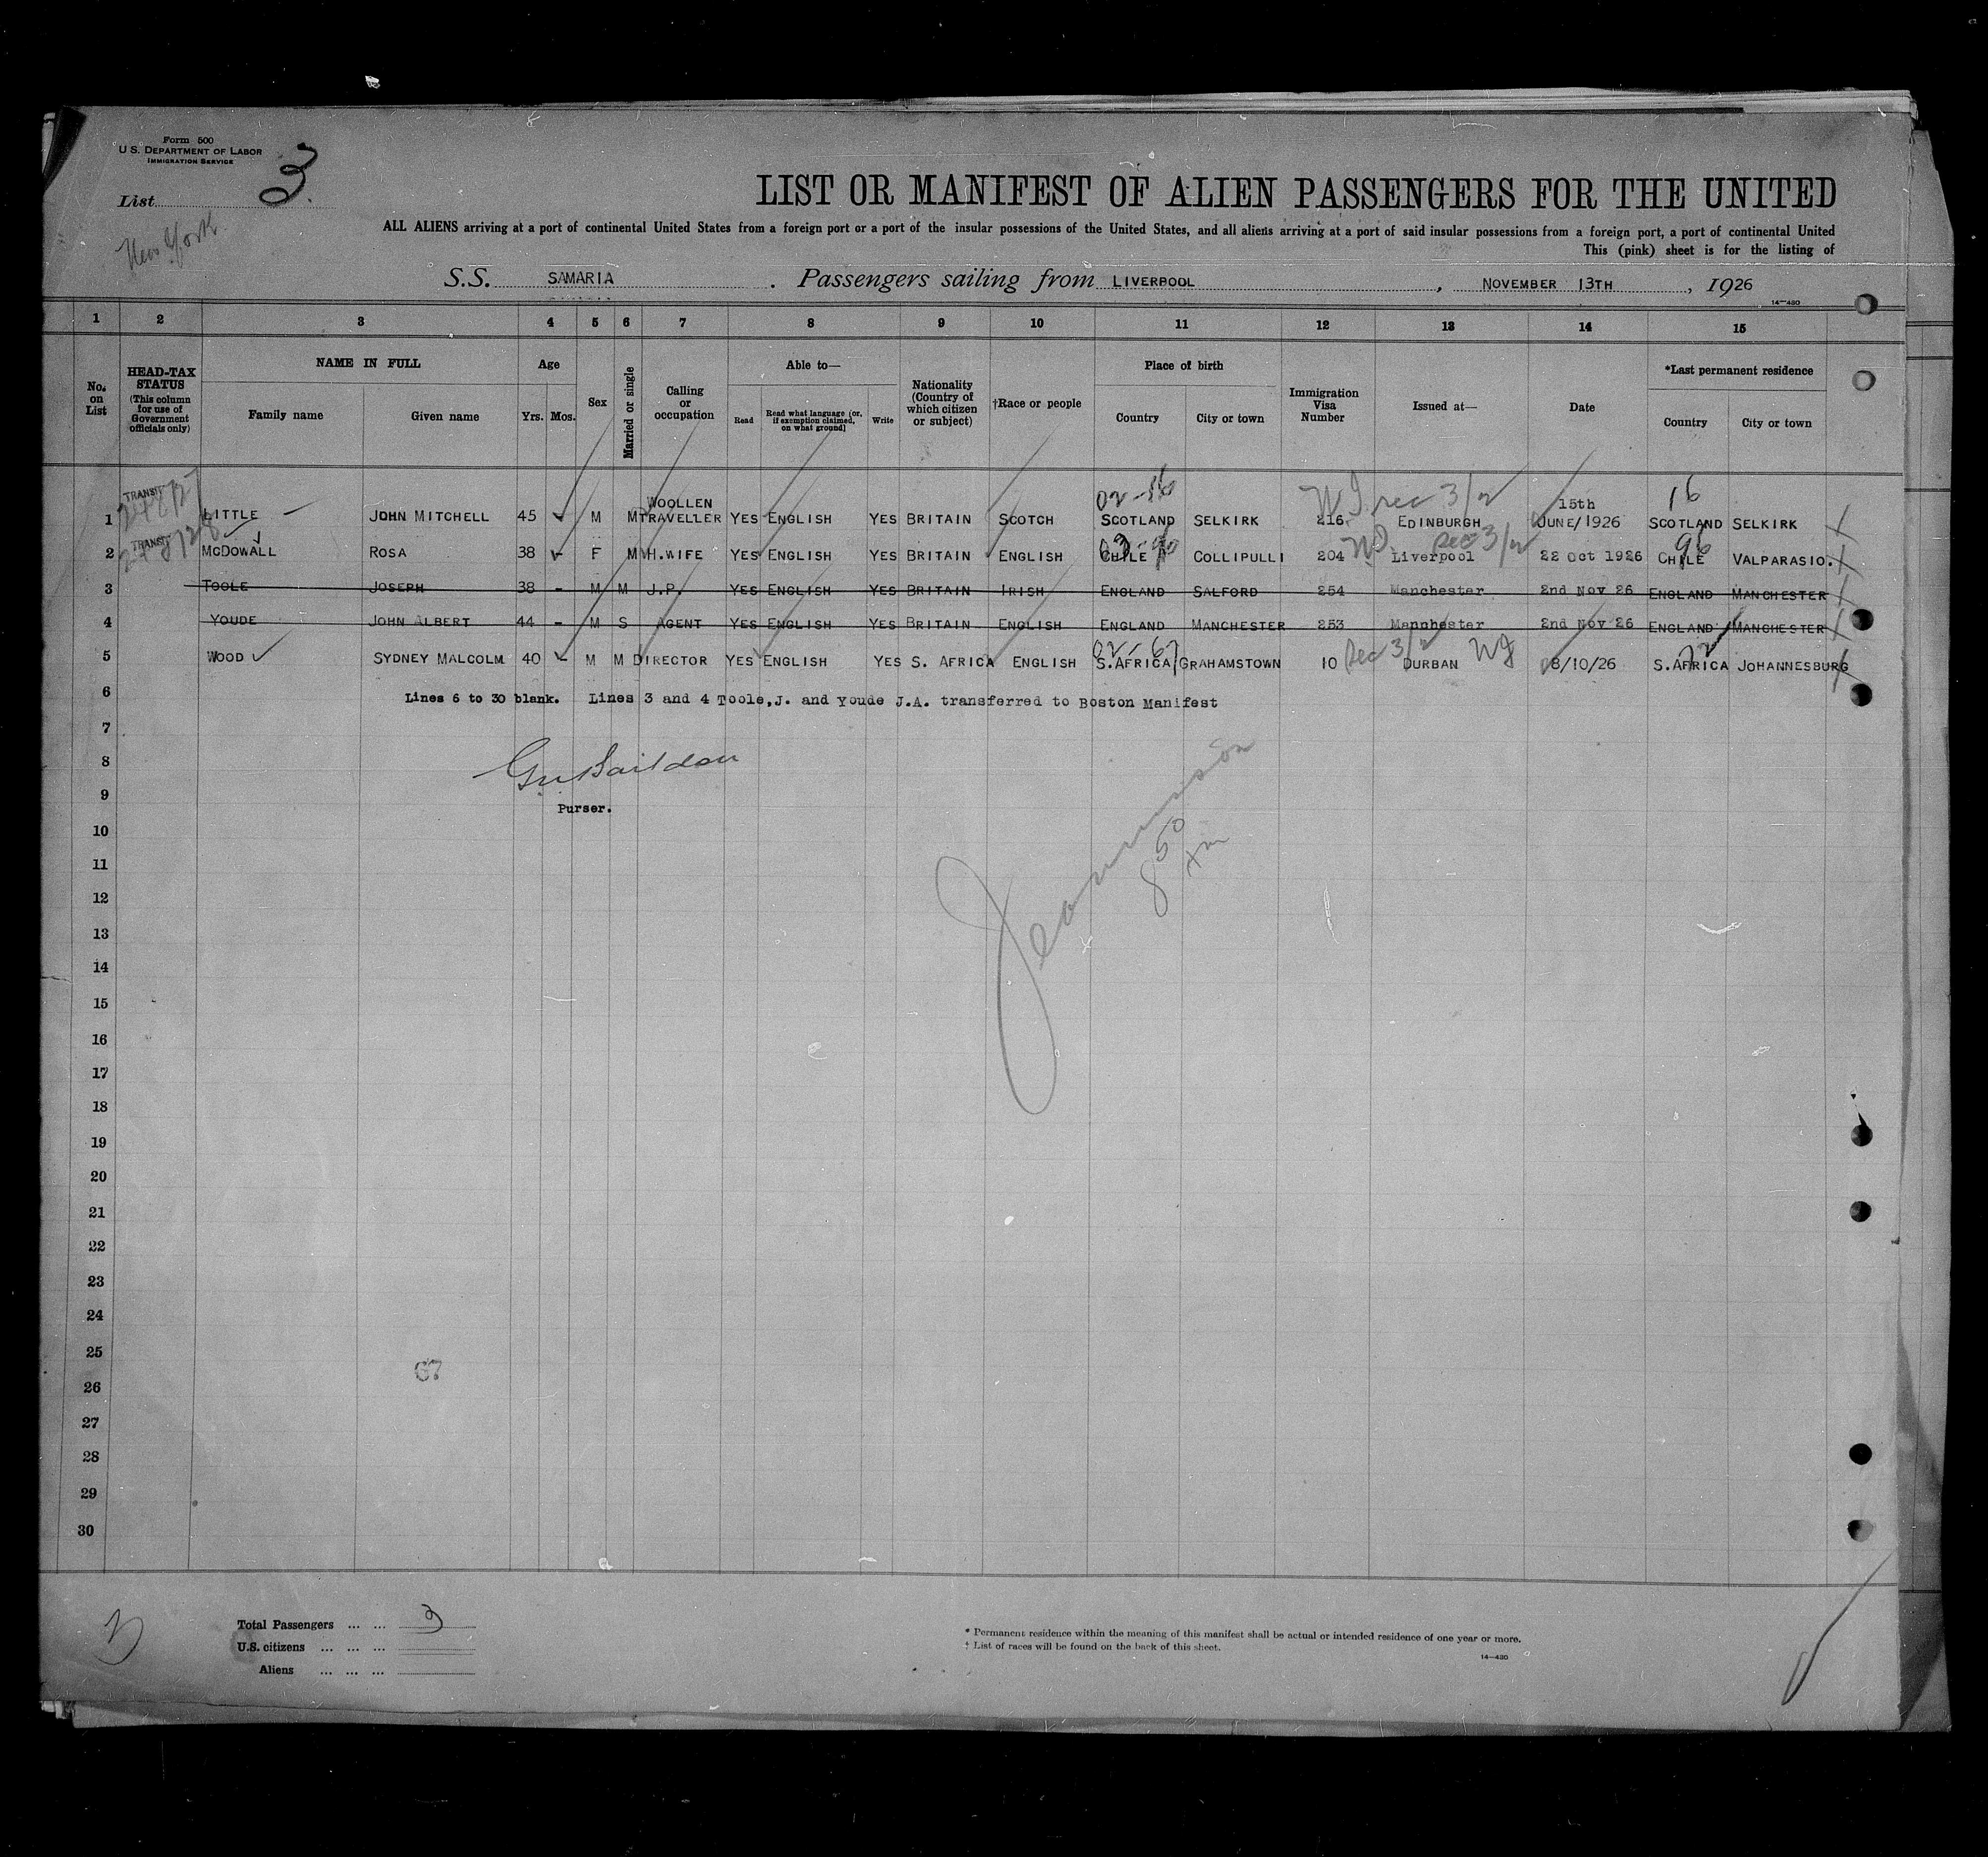 Form 500
U. S. DEPARTMENT OF LABOR
IMMIGRATION SERVICE
List 3.
New York
LIST OR MANIFEST OF ALIEN PASSENGERS FOR THE UNITED
ALL ALIENS arriving at a port of continental United States from a foreign port or a port of the insular possessions of the United States, and all aliens arriving at a port of said insular possessions from a foreign port, a port of continental United
This (pink) sheet is for the listing of
S.S. SAMARIA . Passengers sailing from LIVERPOOL , NOVEMBER 13TH , 1926
14—430
1 2 3 4 5 6 7 8 9 10 11 12 13 14 15
No. on List
HEAD-TAX STATUS (This column for use of Government officials only)
NAME IN FULL
Family name Given name
Age
Yrs. Mos.
Sex
Married or single
Calling or occupation
Able to—
Read Read what language (or, if exemption claimed, on what ground) Write
Nationality (Country of which citizen or subject)
†Race or people
Place of birth
Country City or town
Immigration Visa Number
Issued at—
Date
*Last permanent residence
Country City or town
TRANSIT 02-16 16
1 LITTLE JOHN MITCHELL 45 M M WOOLLEN TRAVELLER YES ENGLISH YES BRITAIN SCOTCH SCOTLAND SELKIRK 216 EDINBURGH 15th JUNE/1926 SCOTLAND SELKIRK
TRANSIT
2 McDOWALL ROSA 38 F M H.WIFE YES ENGLISH YES BRITAIN ENGLISH CHILE COLLIPULLI 204 Liverpool 22 Oct 1926 CHILE VALPARASIO.
3 TOOLE JOSEPH 38 - M M J.P. YES ENGLISH YES BRITAIN IRISH ENGLAND SALFORD 254 Manchester 2nd Nov 26 ENGLAND MANCHESTER
4 YOUDE JOHN ALBERT 44 - M S AGENT YES ENGLISH YES BRITAIN ENGLISH ENGLAND MANCHESTER 253 Manchester 2nd Nov 26 ENGLAND MANCHESTER
02-67 72
5 WOOD SYDNEY MALCOLM 40 - M M DIRECTOR YES ENGLISH YES S. AFRICA ENGLISH S.AFRICA GRAHAMSTOWN 10 DURBAN 8/10/26 S.AFRICA JOHANNESBURG
6 Lines 6 to 30 blank. Lines 3 and 4 Toole,J. and Youde J.A. transferred to Boston Manifest
7
8
9
Purser.
10
11
12
13
14
15
16
17
18
19
20
21
22
23
24
25
67
26
27
28
29
30
3
Total Passengers ... ... 3
U.S. citizens ... ... ...
Aliens ... ... ...
* Permanent residence within the meaning of this manifest shall be actual or intended residence of one year or more.
† List of races will be found on the back of this sheet.
14—430